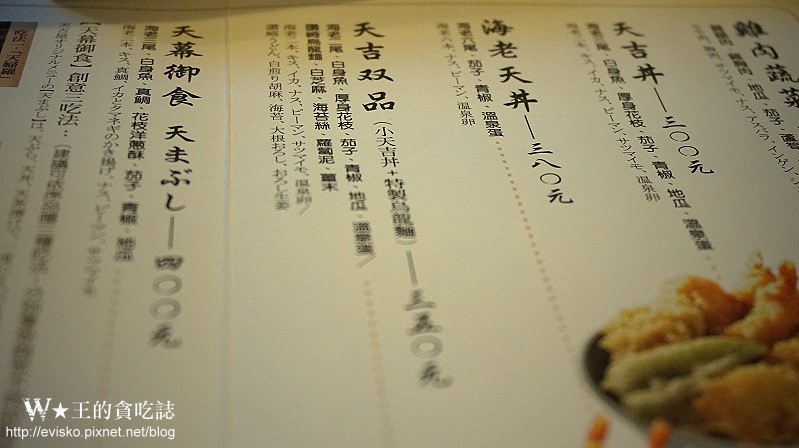 雞肉蔬菜
天吉丼—三〇〇元
海老二尾、白身魚、厚身花枝、茄子、青椒、地瓜、溫泉蛋
海老二本、キス、イカ、ナス、ピーマン、サツマイモ、温泉卵
海老天丼—三八〇元
海老六尾、茄子、青椒、溫泉蛋
海老六本、ナス、ピーマン、温泉卵
天吉双品(小天吉丼+特製烏龍麵)—三五〇元
海老二尾、白身魚、厚身花枝、茄子、青椒、地瓜、溫泉蛋/
讚崎烏龍麵、白芝麻、海苔絲、蘿蔔泥、薑末
海老二本、キス、イカ、ナス、ピーマン、サツマイモ、温泉卵/
讚崎うどん、白煎り胡麻、海苔、大根おろし、おろし生姜
天幕御食 天まぶし—四〇〇元
海老二尾、白身魚、真鯛、花枝洋蔥酥、茄子、青椒、地瓜
海老二本、キス、真鯛、イカとタマネギのかき揚げ、ナス、ピーマン、サツマイモ
【天幕御食】創意三吃法：
吃法:「天婦羅」
W★王的貪吃誌
http://evisko.pixnet.net/blog